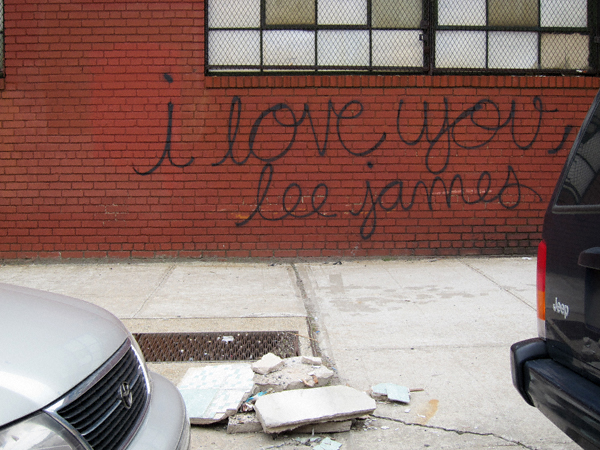 i love you,
lee james
Jeep